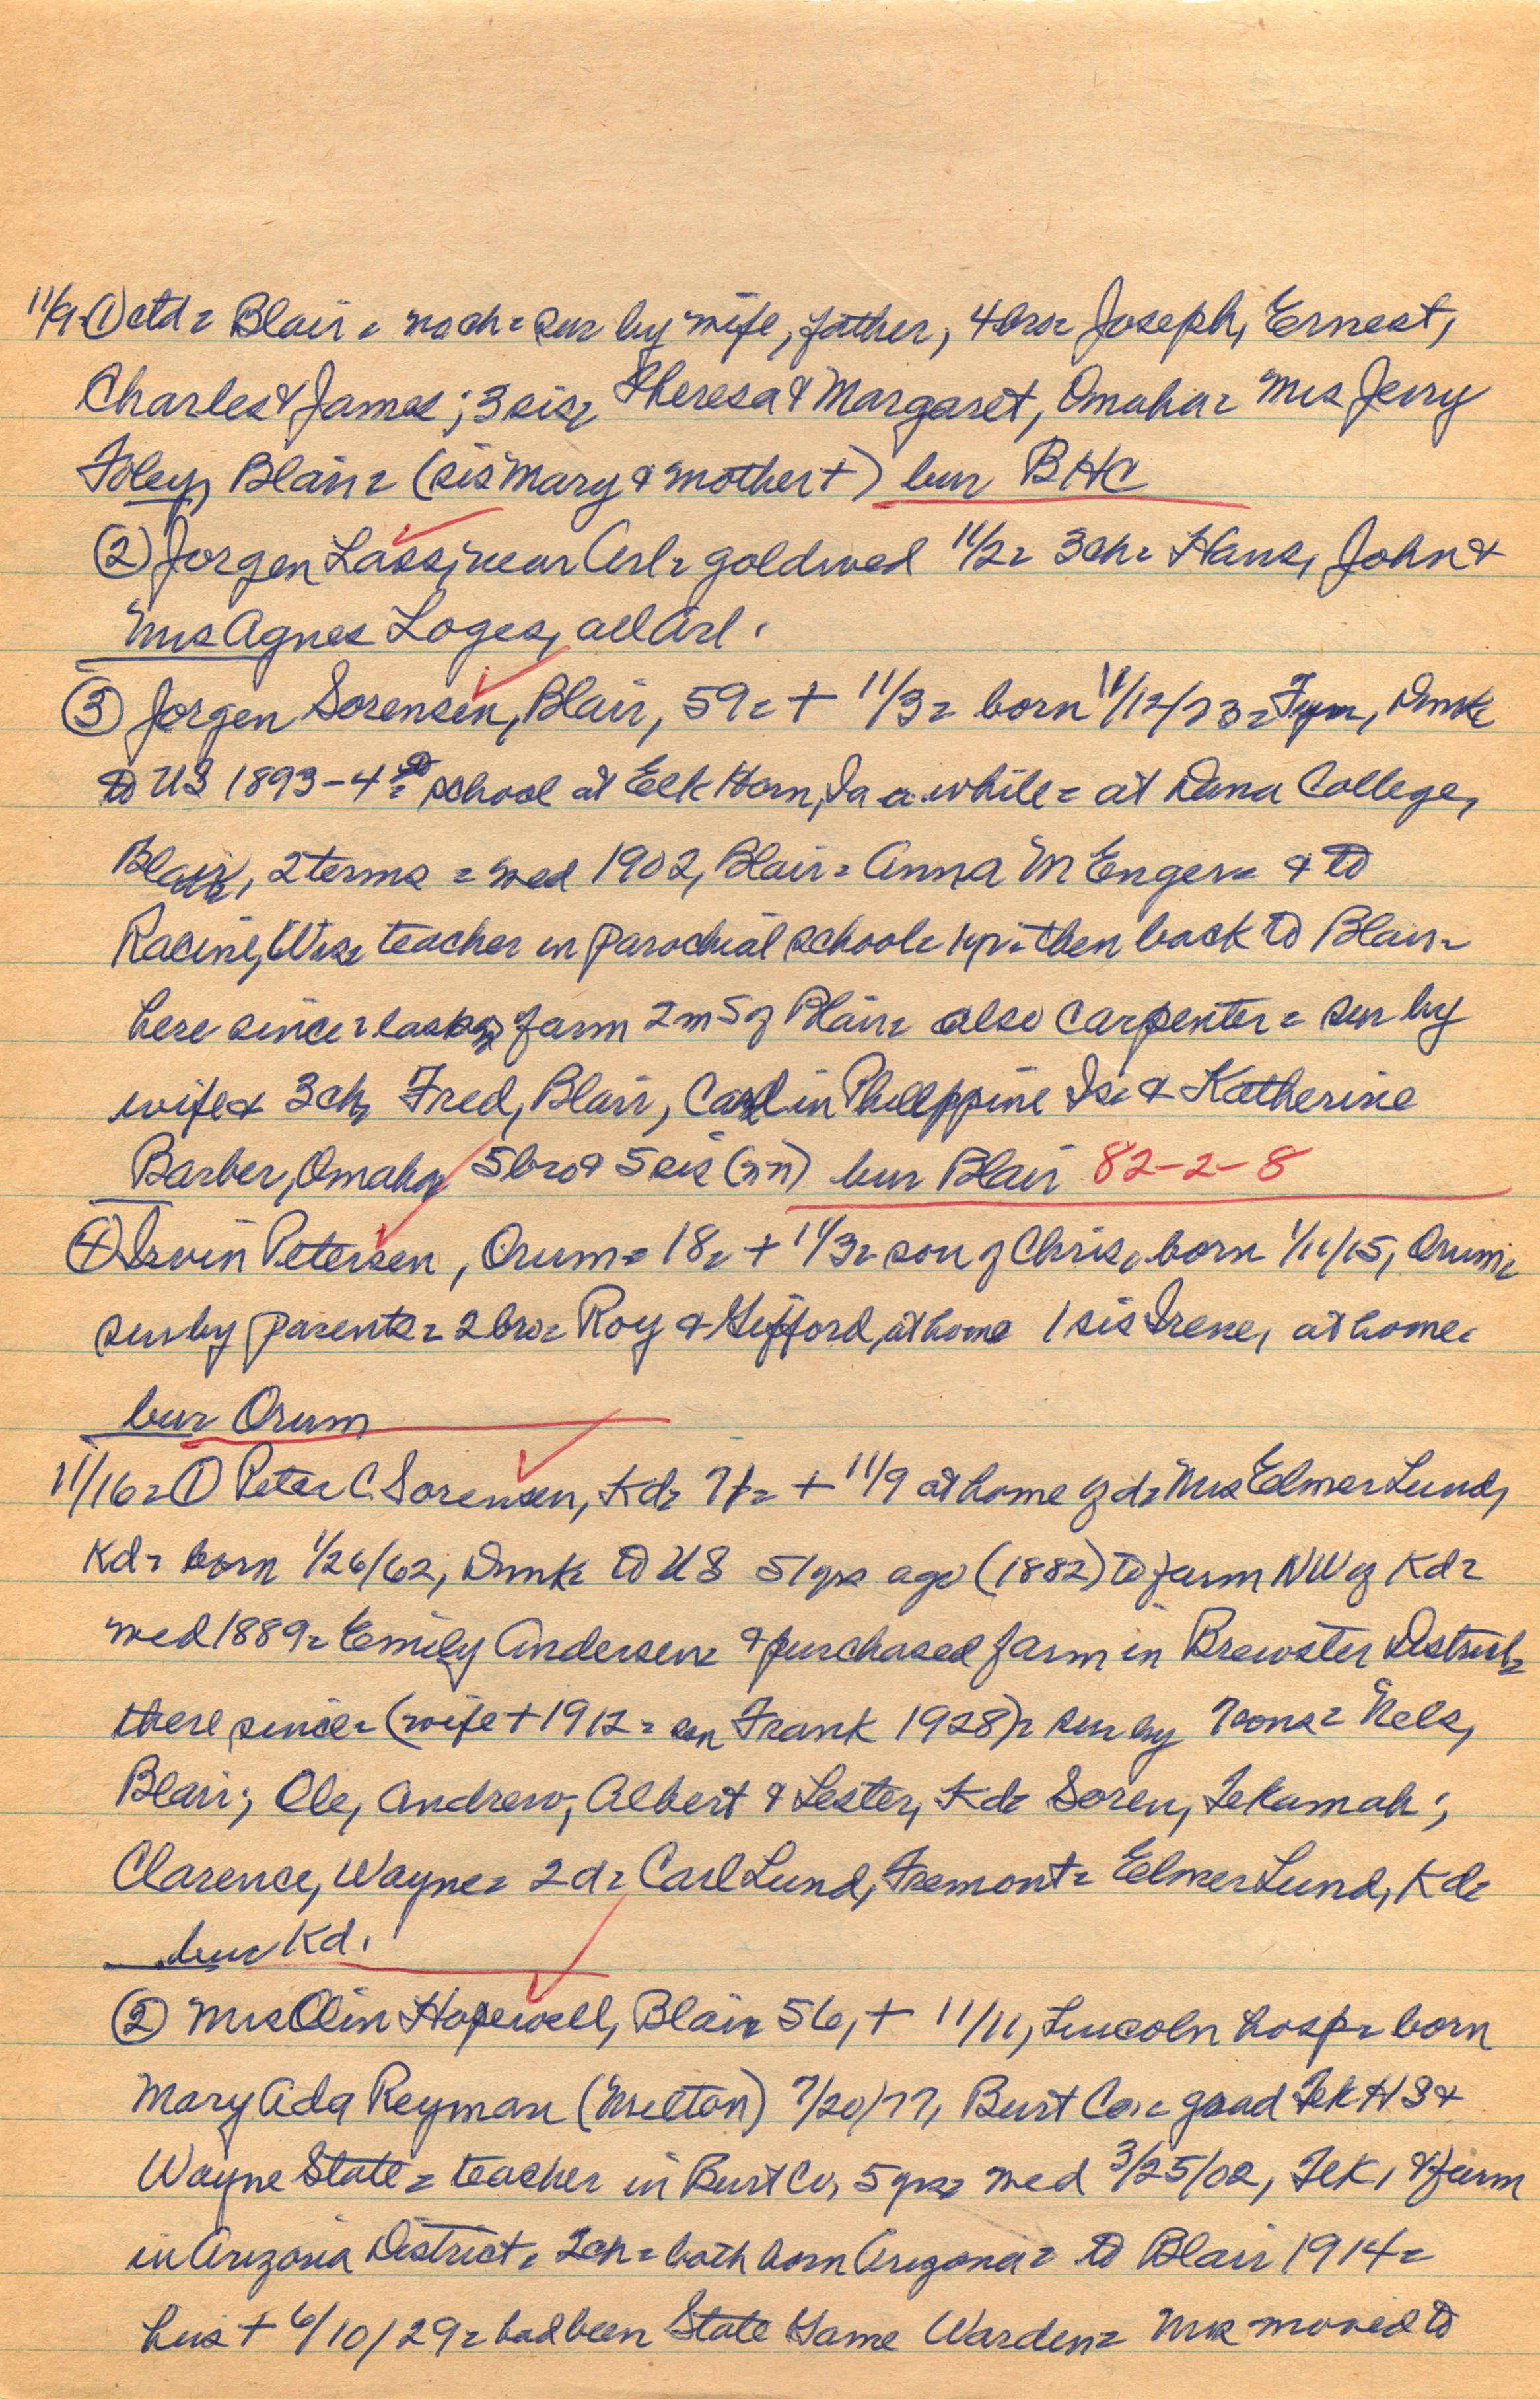 11/9 = ① ctd = Blair = no ch = sur by wife, father, 4 bro = Joseph, Ernest,
Charles & James; 3 sis = Theresa & Margaret, Omaha = Mrs Jerry
Foley, Blair = (sis Mary & mother +) bur BHC
② Jorgen Lass, near Arl = gold wed 11/2 = 3 ch = Hans, John &
Mrs Agnes Loges, all Arl.
③ Jorgen Sorensen, Blair, 59 = + 11/3 = born 11/12/73 = Fyn, Dmk
to US 1893-4 = to school at Elk Horn, Ia a while = at Dana College,
Blair, 2 terms = wed 1902, Blair = Anna M Enger = & to
Racine, Wis = teacher in parochial school = 1 yr = then back to Blair =
here since = farm 2 m S of Blair = also carpenter = sur by
wife & 3 ch, Fred, Blair, Carl in Phillppine Is = & Katherine
Barber, Omaha 5 bro & 5 sis (nn) bur Blair 82-2-8
④ Irvin Petersen, Orum = 18 = + 11/3 = son of Chris, born 1/11/15, Orum =
sur by parents = 2 bro = Roy & Gifford, at home 1 sis Irene, at home =
bur Orum
11/16 = ① Peter C. Sorensen, Kd = 71 = + 11/9 at home of d = Mrs Elmer Lund,
Kd = born 1/26/62, Dmk = to US 51 yrs ago (1882) to farm NW of Kd =
wed 1889 = Emily Andersen = & purchased farm in Brewster District =
there since = (wife + 1912 = son Frank 1928) = sur by 7 sons = Nels,
Blair; Ole, Andrew, Albert & Lester, Kd = Soren, Tekamah;
Clarence, Wayne = 2 d = Carl Lund, Fremont = Elmer Lund, Kd =
bur Kd.
② Mrs Olin Hopewell, Blair = 56, + 11/11, Lincoln hosp = born
Mary Ada Reyman (Milton) 7/20/77, Burt Co = grad Tek HS &
Wayne State = teacher in Burt Co, 5 yrs = wed 3/25/02, Tek, & farm
in Arizona District = 2 ch = both born Arizona = to Blair 1914 =
hus + 6/10/29 = had been State Game Warden = Mrs moved to